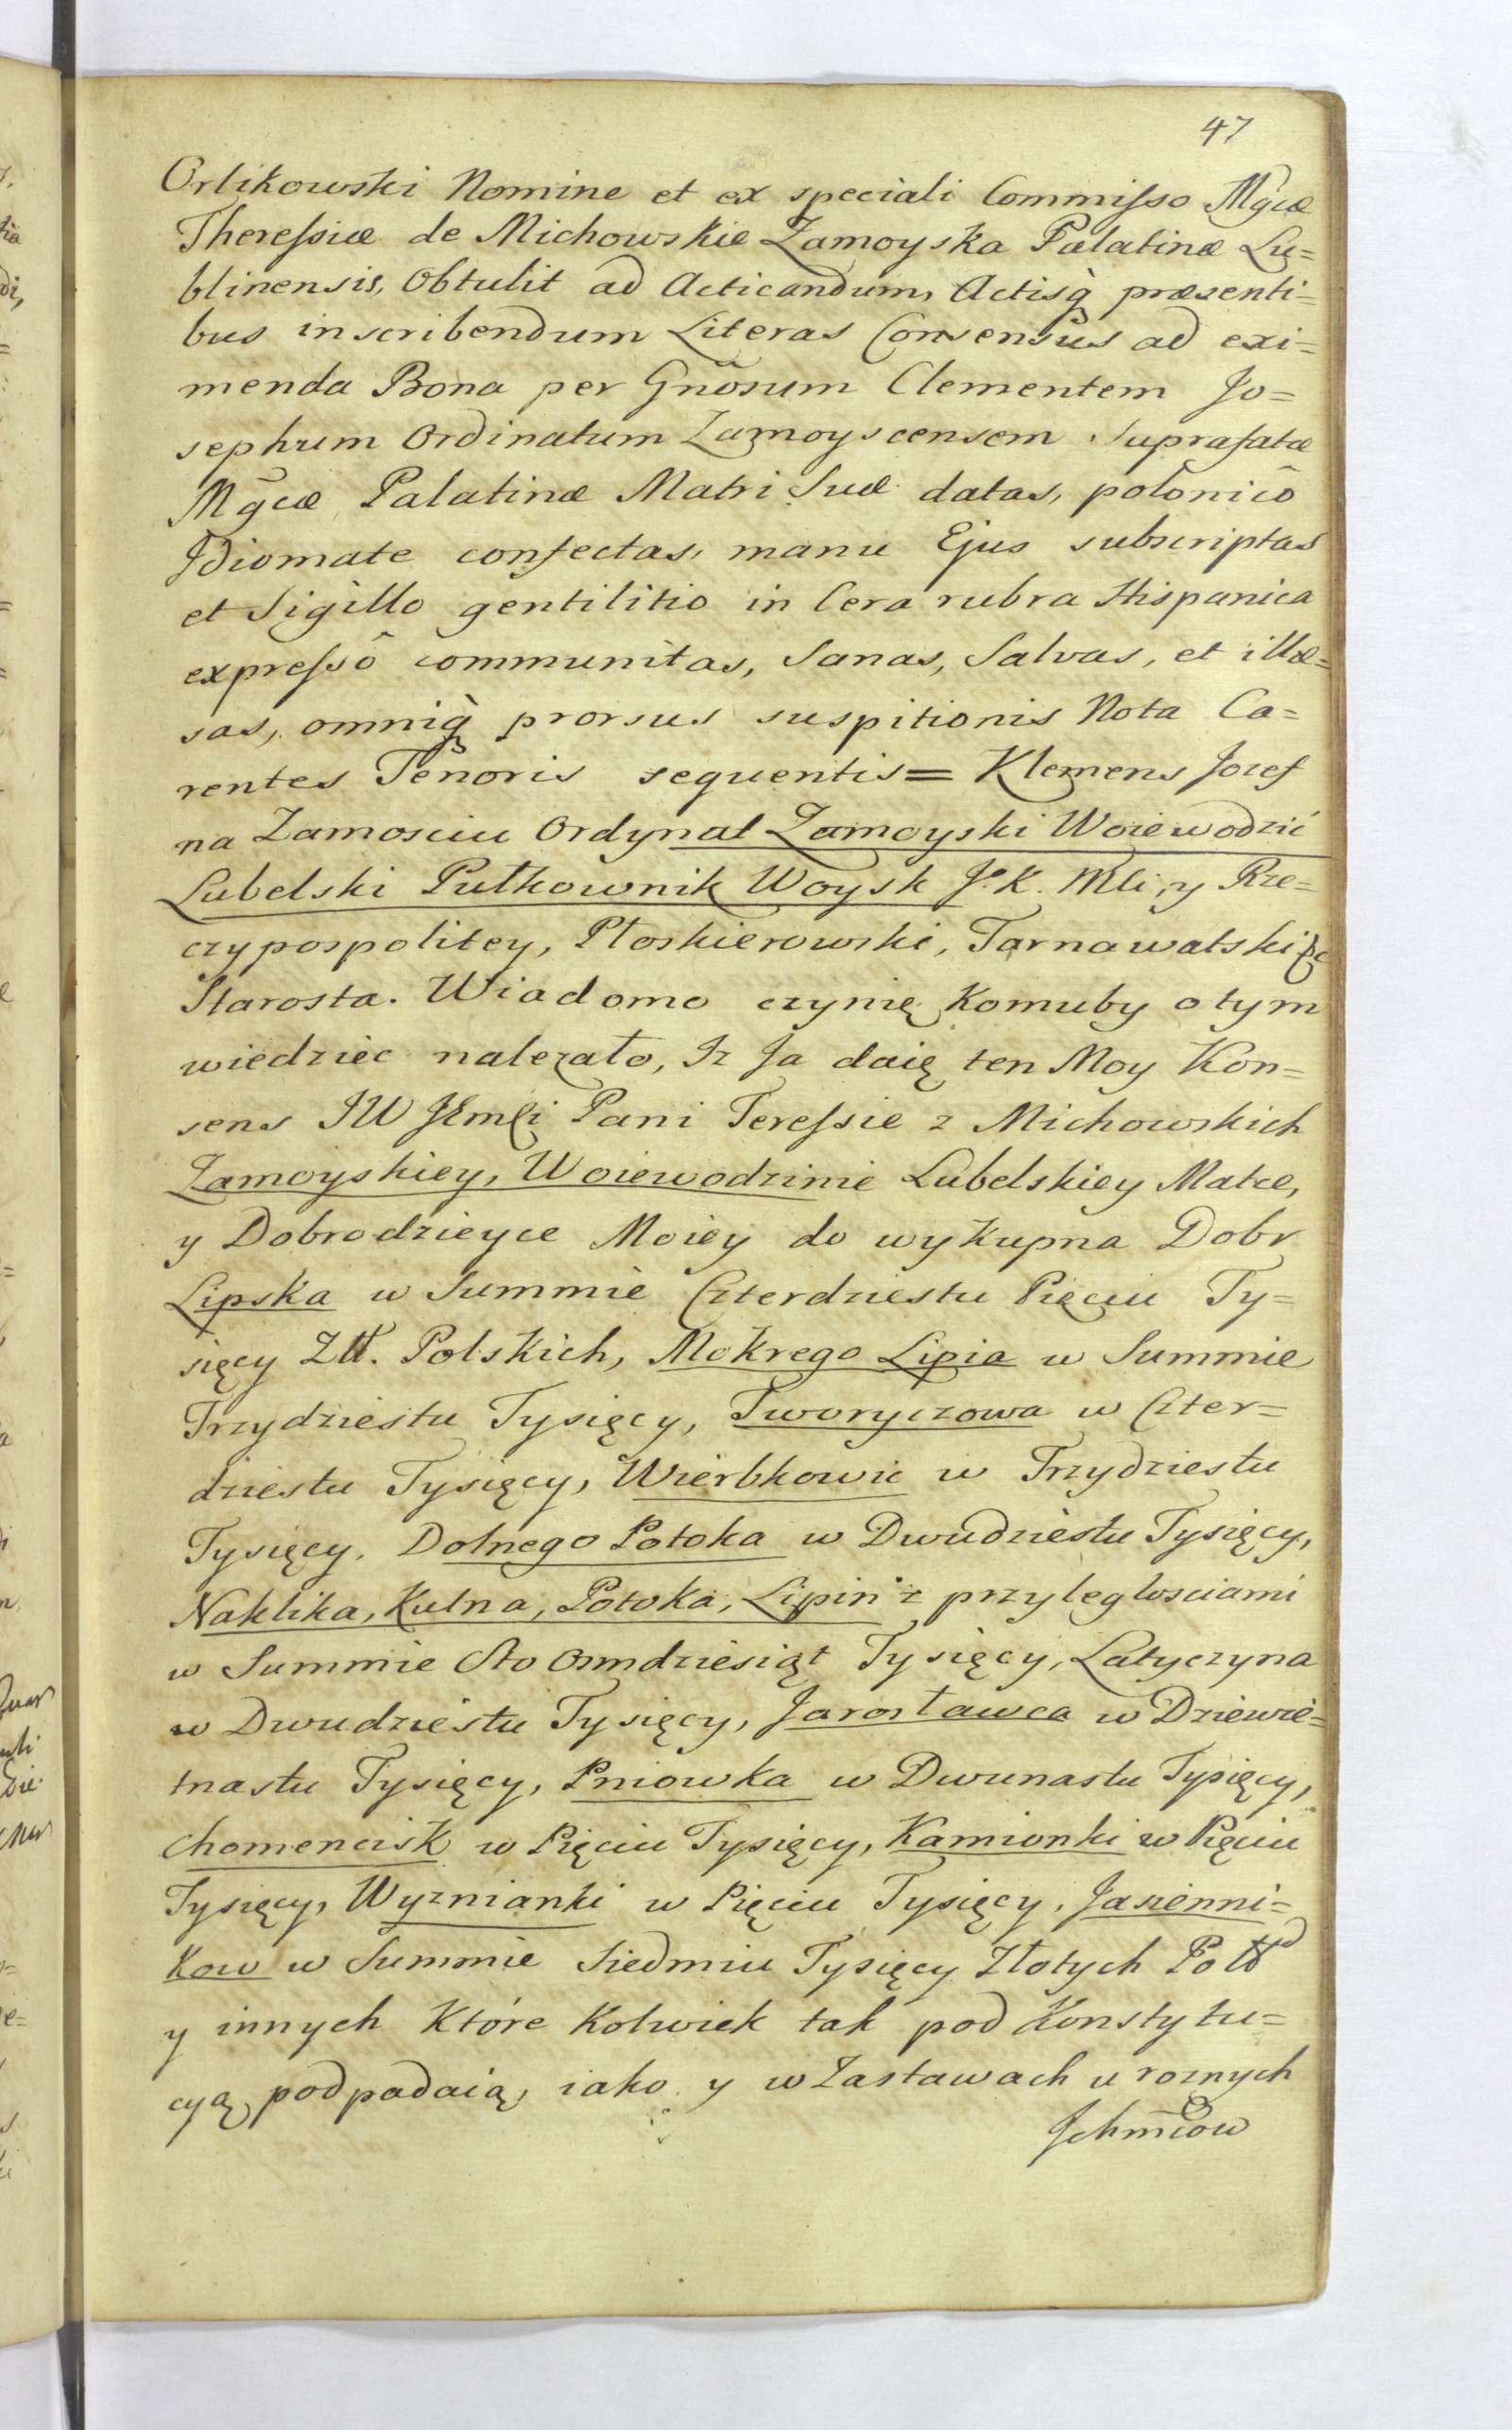 47
Orlikowski Nomine et ex speciali Commisso Mgcæ
Theressiæ de Michowskie Zamoyska Palatinæ Lu=
blinensis, Obtulit ad Acticandum, Actisq̀ præsenti=
bus inscribendum Literas Consensus ad exi=
menda Bona per Gnosum Clementem Jo=
sephum Ordinatum Zamoyscensem Suprafatæ
Mgcæ Palatinæ Matri Suæ datas, polonicô
Idiomate confectas, manu Ejus subscriptas
et Sigillo gentilitio in Cera rubra Hispanica
expressô communitas, Sanas, Salvas, et illæ=
sas, omniq̀ prorsus suspitionis Nota Ca=
rentes Tenoris sequentis = Klemens Jozef
na Zamosciu Ordynat Zamoyski Woiewodzić
Lubelski Pułkownik Woysk J. K. Mci, y Rze=
czypospolitey, Płoskierowski, Tarnawatski &c
Starosta. Wiadomo czynię Komuby o tym
wiedziec nalezało, Iz Ja daię ten Moy Kon=
sens JW JEmći Pani Teressie z Michowskich
Zamoyskiey, Woiewodzinie Lubelskiey Matce,
y Dobrodzieyce Moiey do wykupna Dobr
Lipska w Summie Czterdziestu Pięciu Ty=
sięcy Złł. Polskich, Mokrego Lipia w Summie
Trzydziestu Tysięcy, Tworyczowa w Czter=
dziestu Tysięcy, Wierbkowic w Trzydziestu
Tysięcy, Dolnego Potoka w Dwudziestu Tysięcy,
Naklika, Kulna, Potoka, Lipin z przyległosciami
w Summie Sto Osmdziesiąt Tysięcy, Latyczyna
w Dwudziestu Tysięcy, Jarosławca w Dziewie=
tnastu Tysięcy, Pniowka w Dwunastu Tysięcy,
Chomencisk w Pięciu Tysięcy, Kamionki w Pięciu
Tysięcy, Wyznianki w Pięciu Tysięcy, Jasienni=
kow w Summie Siedmiu Tysięcy Złotych Poll
y innych Które Kolwiek tak pod Konstytu=
cyą podpadaią, iako y w Zastawach u roznych
Ichmciow